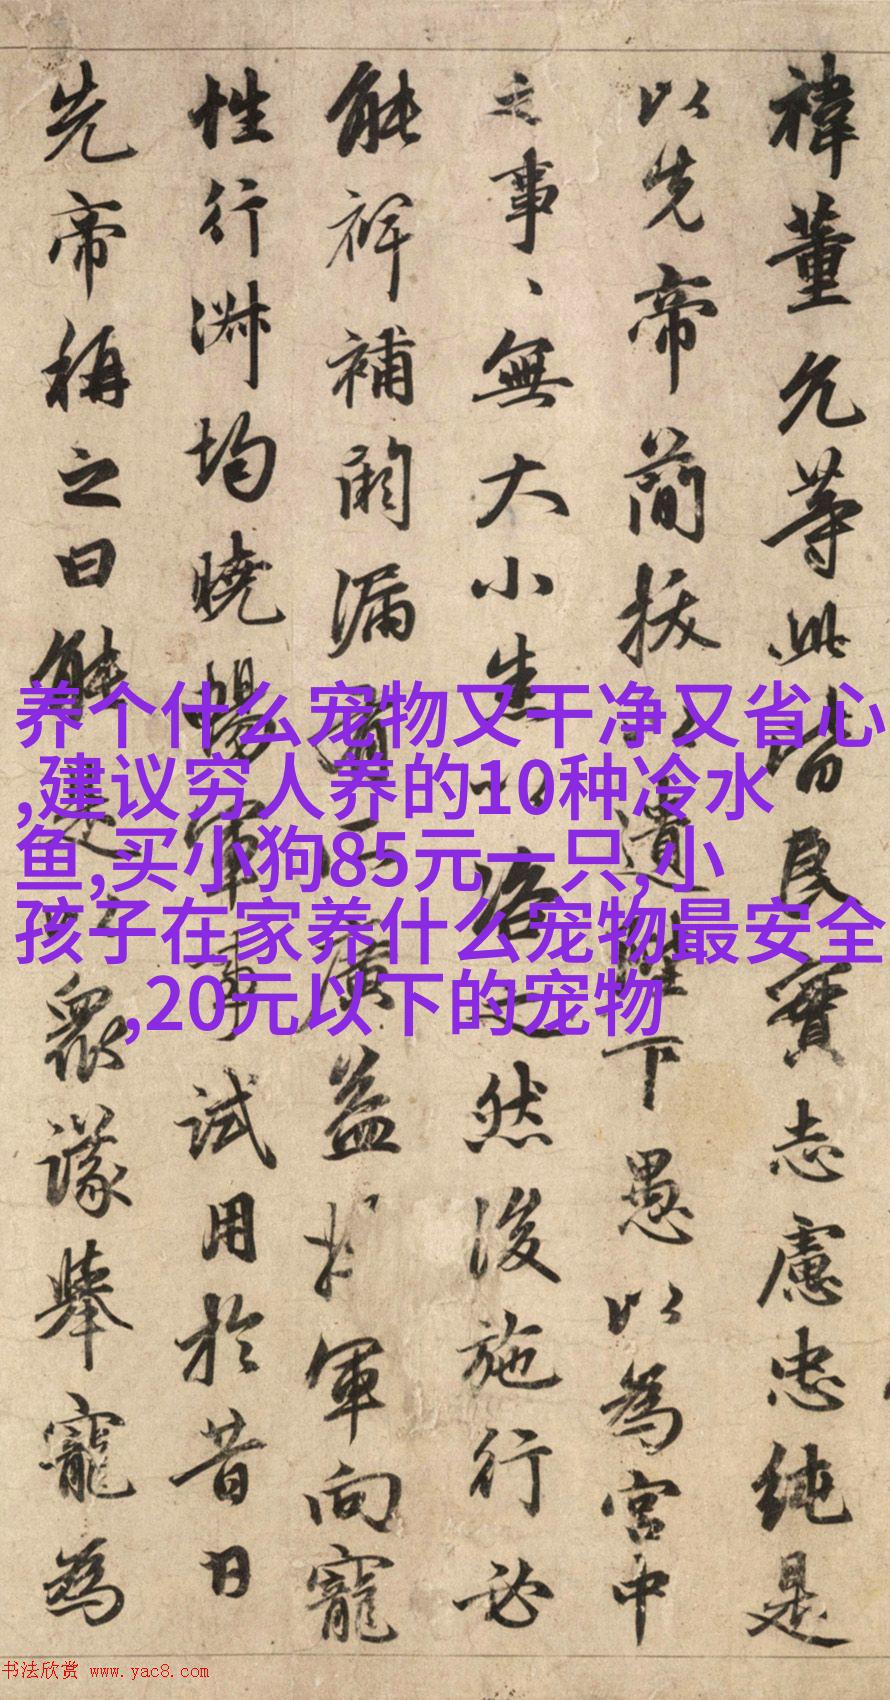 禕董允等此皆良實志慮忠純是
以先帝簡拔以遺陛下愚以為宮中
之事、無大小悉以咨之然後施行必
能裨補闕漏有所廣益將軍向寵
性行淑均曉暢軍事試用於昔日
先帝稱之曰能是以眾議舉寵為
养个什么宠物又干净又省心
,建议穷人养的10种冷水
鱼,买小狗85元一只,小
孩子在家养什么宠物最安全
,20元以下的宠物
书法欣赏 www.yac8.com